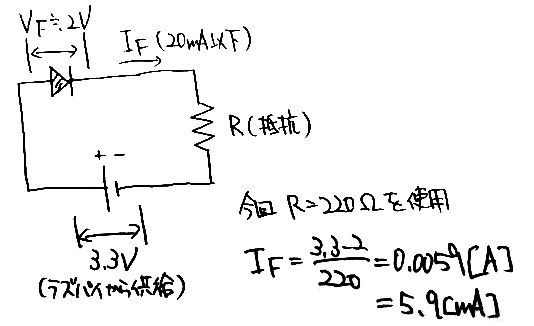 VF≒2V
IF(20mA以下)
R(抵抗)
+ -
3.3V
(ラズパイから供給)
今回 R=220Ωを使用
IF = 3.3-2 / 220 = 0.0059[A]
= 5.9[mA]